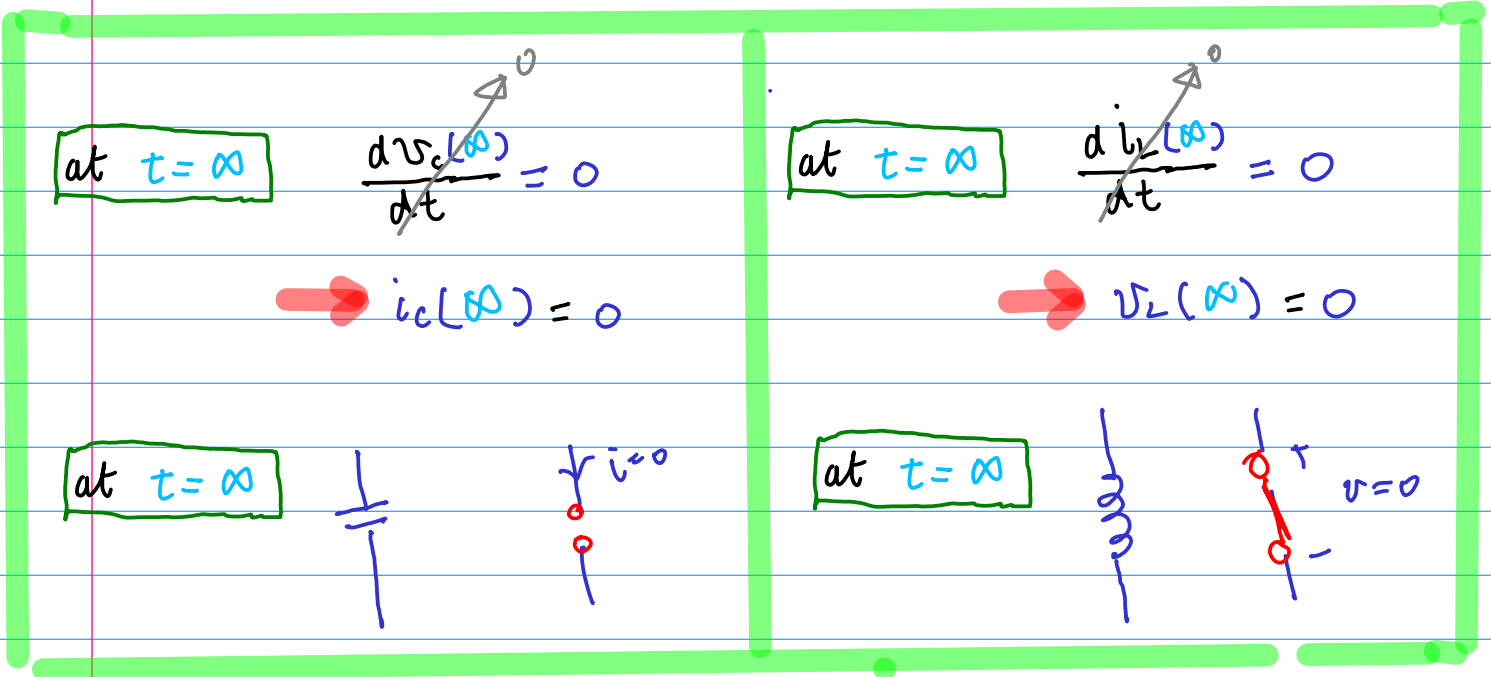 0
at t = ∞ dv_c(∞)/dt = 0
i_c(∞) = 0
at t = ∞ i=0
0
at t = ∞ di_L(∞)/dt = 0
v_L(∞) = 0
at t = ∞ + v=0 −